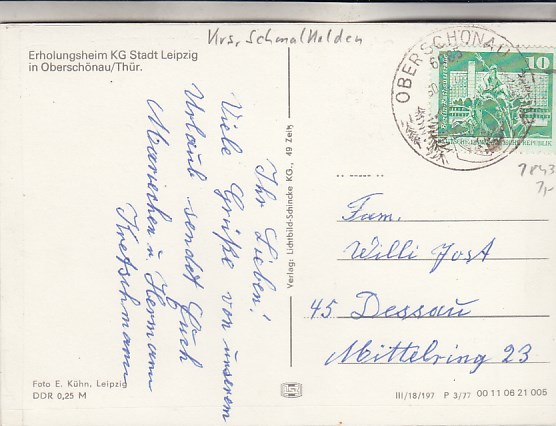 Krs. Schmalkalden
Erholungsheim KG Stadt Leipzig
in Oberschönau/Thür.
OBERSCHÖNAU
10
Ihr Lieben!
Viele Grüße von unserem
Urlaub sendet Euch
Mariechen u. Hermann
Kretschmann
Verlag: Lichtbild-Schincke KG., 49 Zeitz
Fam.
Willi Jost
45 Dessau
Mittelring 23
Foto E. Kühn, Leipzig
DDR 0,25 M
III/18/197 P 3/77 00 11 06 21 005